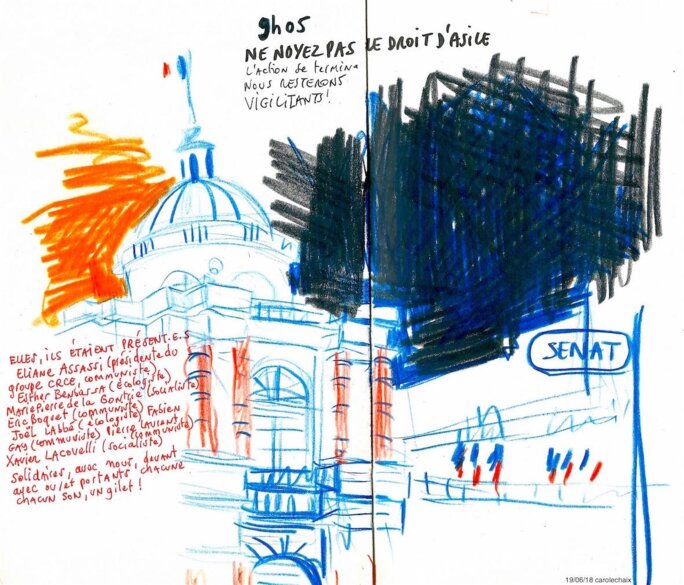 9h05
NE NOYEZ PAS LE DROIT D'ASILE
L'ACTION SE TERMINE
NOUS RESTERONS
VIGILITANTS!
SENAT
ELLES, ILS ÉTAIENT PRÉSENT.E.S
ELIANE ASSASSI (présidente du
groupe CRCE, communiste)
Esther Benbassa (écologiste)
Marie Pierre de la Gontrie (socialiste)
Eric Bocquet (communiste)
Joël Labbé (écologiste) Fabien
GAY (communiste) Pierre Laurent
(communiste)
Xavier Lacovelli (socialiste)
Solidaires, avec nous, devant
avec ou/et portants chacune
chacun son, un gilet!
19/06/18 carolechaix